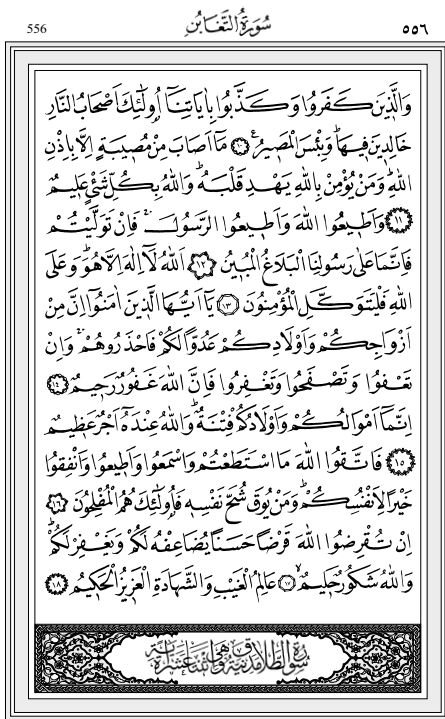 556 سُورَةُ التَّغَابُنِ ٥٥٦
وَالَّذِينَ كَفَرُوا وَكَذَّبُوا بِاٰيَاتِنَٓا اُو۬لٰٓئِكَ اَصْحَابُ النَّارِ
خَالِدِينَ فِيهَاۜ وَبِئْسَ الْمَصِيرُ۟ ﴿١٠﴾ مَٓا اَصَابَ مِنْ مُصِيبَةٍ اِلَّا بِاِذْنِ
اللّٰهِۜ وَمَنْ يُؤْمِنْ بِاللّٰهِ يَهْدِ قَلْبَهُۜ وَاللّٰهُ بِكُلِّ شَيْءٍ عَلِيمٌ
﴿١١﴾ وَاَطِيعُوا اللّٰهَ وَاَطِيعُوا الرَّسُولَۚ فَاِنْ تَوَلَّيْتُمْ
فَاِنَّمَا عَلٰى رَسُولِنَا الْبَلَاغُ الْمُبِينُ ﴿١٢﴾ اَللّٰهُ لَٓا اِلٰهَ اِلَّا هُوَۜ وَعَلَى
اللّٰهِ فَلْيَتَوَكَّلِ الْمُؤْمِنُونَ ﴿١٣﴾ يَٓا اَيُّهَا الَّذِينَ اٰمَنُٓوا اِنَّ مِنْ
اَزْوَاجِكُمْ وَاَوْلَادِكُمْ عَدُوًّا لَكُمْ فَاحْذَرُوهُمْۚ وَاِنْ
تَعْفُوا وَتَصْفَحُوا وَتَغْفِرُوا فَاِنَّ اللّٰهَ غَفُورٌ رَحِيمٌ ﴿١٤﴾
اِنَّمَٓا اَمْوَالُكُمْ وَاَوْلَادُكُمْ فِتْنَةٌۜ وَاللّٰهُ عِنْدَهُٓ اَجْرٌ عَظِيمٌ
﴿١٥﴾ فَاتَّقُوا اللّٰهَ مَا اسْتَطَعْتُمْ وَاسْمَعُوا وَاَطِيعُوا وَاَنْفِقُوا
خَيْرًا لِاَنْفُسِكُمْۜ وَمَنْ يُوقَ شُحَّ نَفْسِهِ فَاُو۬لٰٓئِكَ هُمُ الْمُفْلِحُونَ ﴿١٦﴾
اِنْ تُقْرِضُوا اللّٰهَ قَرْضًا حَسَنًا يُضَاعِفْهُ لَكُمْ وَيَغْفِرْ لَكُمْۜ
وَاللّٰهُ شَكُورٌ حَلِيمٌۙ ﴿١٧﴾ عَالِمُ الْغَيْبِ وَالشَّهَادَةِ الْعَزِيزُ الْحَكِيمُ ﴿١٨﴾
سورة الطلاق مدنية وهي اثنتا عشرة آية